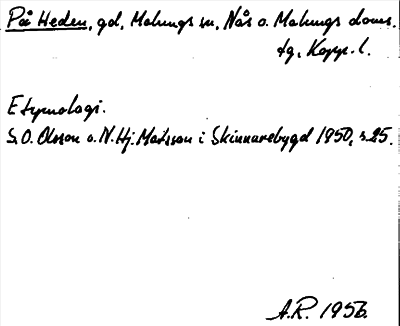 På Heden, gd, Malungs sn, Nås o. Malungs doms.
tg, Kopp. l.
Etymologi.
S.O. Olsson o. N. Hj. Matsson i Skinnarebygd 1950, s. 25.
A.R. 1956.